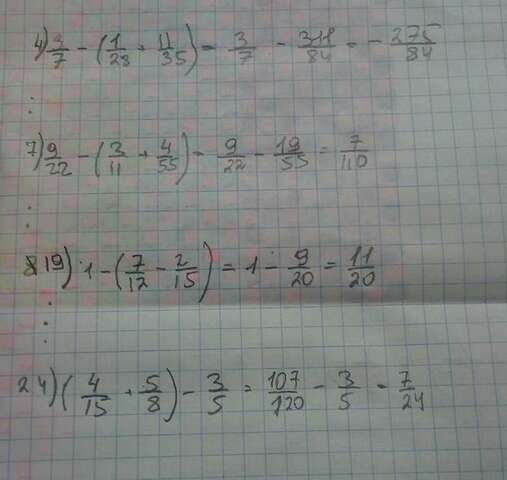 4) 3/7 - (1/28 + 11/35) = 3/7 - 311/84 = - 275/84
7) 9/22 - (3/11 + 4/55) = 9/22 - 19/55 = 7/110
19) 1 - (7/12 - 2/15) = 1 - 9/20 = 11/20
24) (4/15 + 5/8) - 3/5 = 107/120 - 3/5 = 7/24